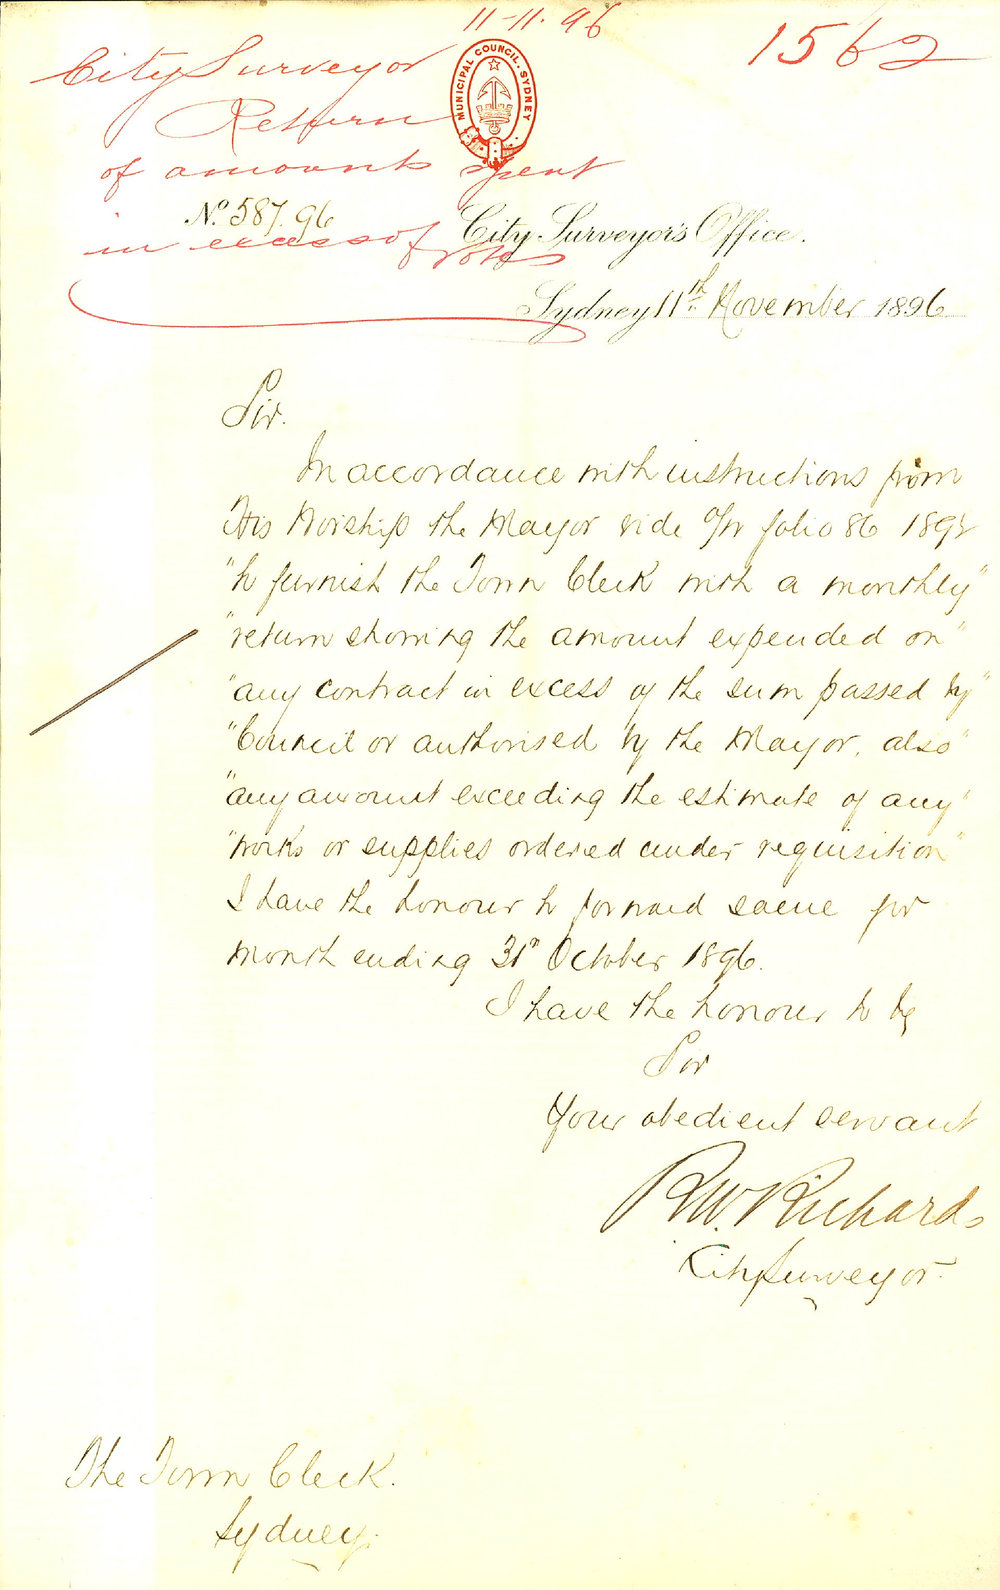 11-11.96
1562
City Surveyor
Return
of amounts spent
in excess of votes
MUNICIPAL COUNCIL. SYDNEY
No. 587.96
City Surveyor's Office.
Sydney 11th November 1896
Sir.
In accordance with instructions from
His Worship the Mayor vide folio 86
"to furnish the Town Clerk with a monthly"
"return showing the amount expended on"
"any contract in excess of the sum passed by"
"Council or authorised by the Mayor, also"
"any amount exceeding the estimate of any"
"works or supplies ordered under requisition"
I have the honour to forward same for
month ending 31st October 1896.
I have the honour to be
Sir
Your obedient servant
R.W. Richards
City Surveyor.
The Town Clerk.
Sydney.